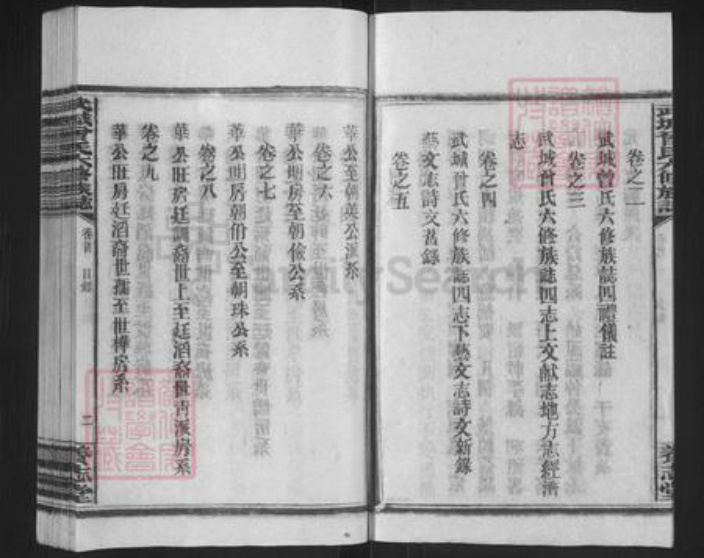 武城曾氏六修族誌
卷之二
武城曾氏六修族誌四禮儀註
卷之三
武城曾氏六修族誌四志上文献志地方志經濟
志
卷之四
武城曾氏六修族誌四志下藝文志詩文新錄
藝文志詩文舊錄
卷之五
華公至朝英公派系
卷之六
華公明房至朝儉公系
卷之七
華公明房朝佾公至朝珠公系
卷之八
華公旺房廷
裔世上至廷滔裔世青派房系
卷之九
華公旺房廷滔裔世孺至世樺房系
武城曾氏六修族誌
卷首 目錄
二
養志堂
FamilySearch